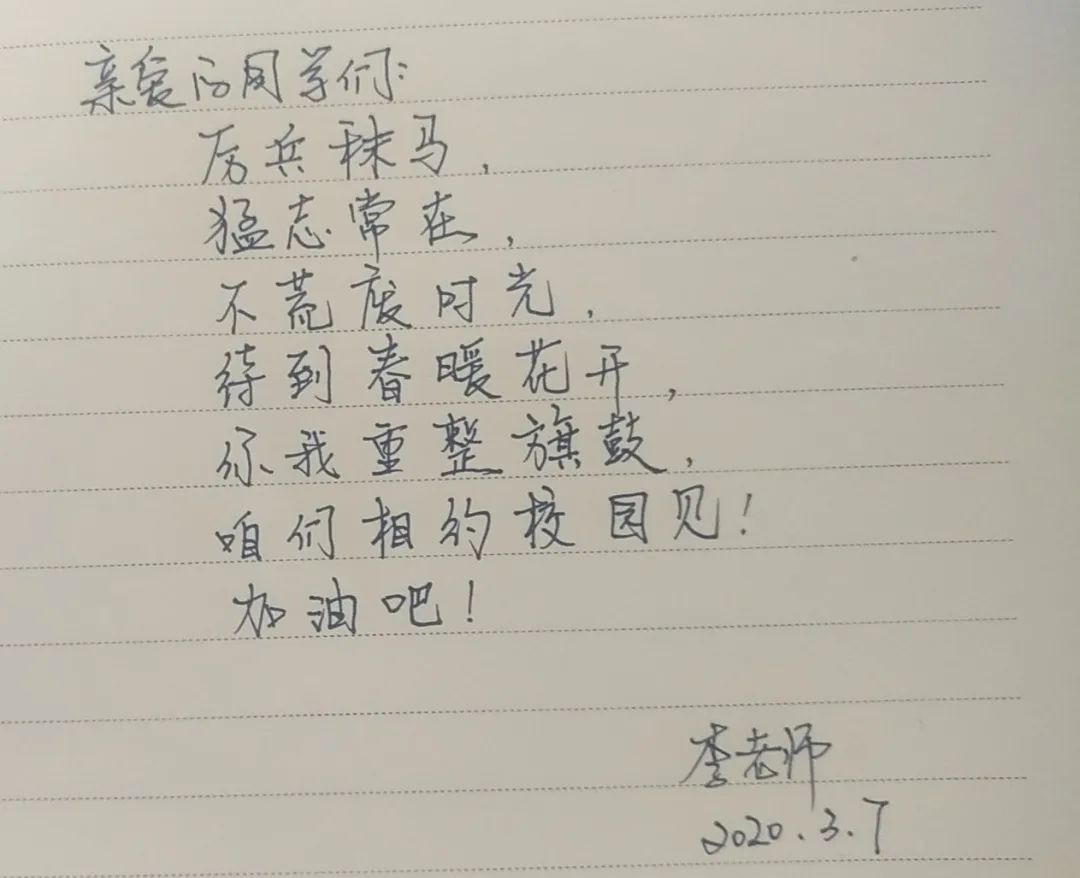 亲爱的同学们:
厉兵秣马,
猛志常在,
不荒废时光,
待到春暖花开,
你我重整旗鼓,
咱们相约校园见!
加油吧!
李老师
2020.3.7